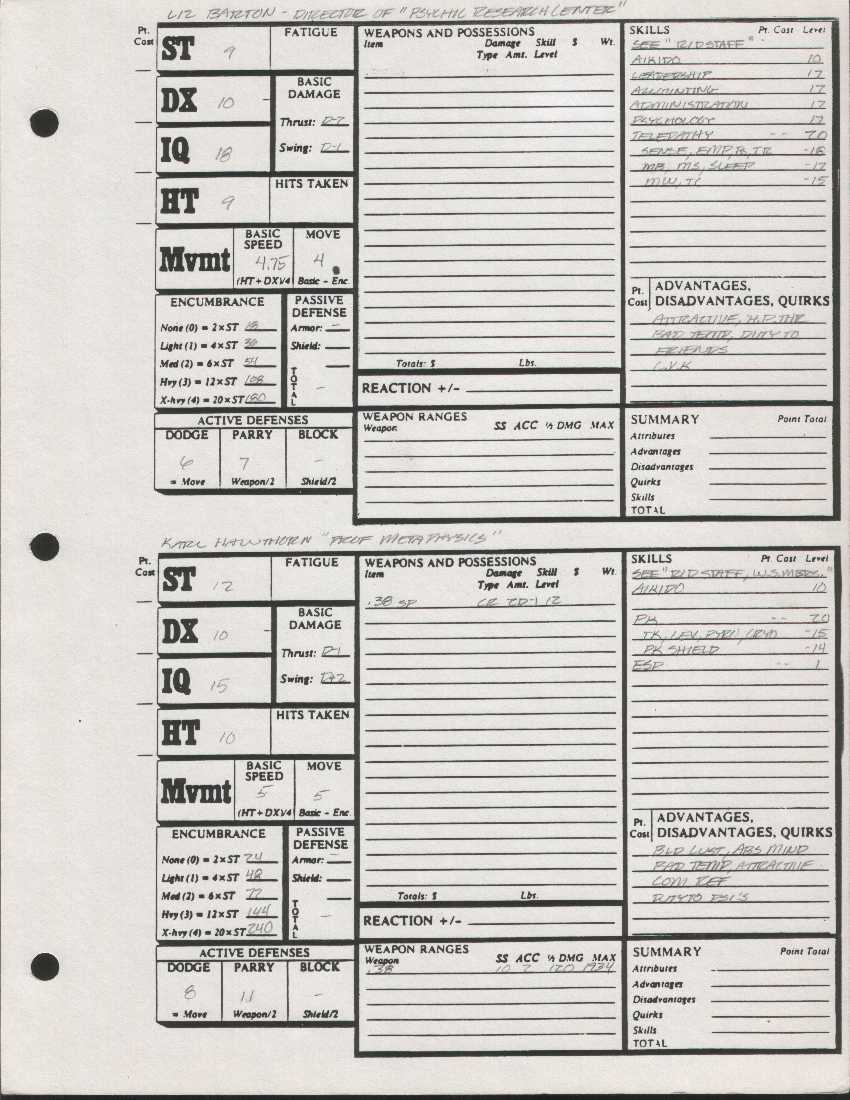 LIZ BARTON - DIRECTOR OF "PSYCHIC RESEARCH CENTER"
Pt. Cost
ST 9
FATIGUE
DX 10
BASIC DAMAGE
Thrust: D-2
Swing: D-1
IQ 18
HT 9
HITS TAKEN
Mvmt
BASIC SPEED 4.75
(HT + DX)/4
MOVE 4
Basic - Enc.
ENCUMBRANCE
None (0) = 2 x ST 18
Light (1) = 4 x ST 36
Med (2) = 6 x ST 54
Hvy (3) = 12 x ST 108
X-hvy (4) = 20 x ST 180
PASSIVE DEFENSE
Armor: -
Shield:
TOTAL -
ACTIVE DEFENSES
DODGE PARRY BLOCK
6 7 -
= Move Weapon/2 Shield/2
WEAPONS AND POSSESSIONS
Item Damage Skill $ Wt.
Type Amt. Level
Totals: $ Lbs.
REACTION +/-
WEAPON RANGES
Weapon SS ACC ½ DMG MAX
SKILLS Pt. Cost Level
SEE "RID STAFF"
AIKIDO 10
LEADERSHIP 17
ACCOUNTING 17
ADMINISTRATION 17
PSYCHOLOGY 17
TELEPATHY -- 20
SENSE, EMP, TR -18
MB, MS, SLEEP -17
MW, TC -15
Pt. Cost
ADVANTAGES, DISADVANTAGES, QUIRKS
ATTRACTIVE, H.P. THR
BAD TEMP, DUTY TO
FRIENDS
SUMMARY Point Total
Attributes
Advantages
Disadvantages
Quirks
Skills
TOTAL
KARL HAWTHORN "PROF METAPHYSICS"
Pt. Cost
ST 12
FATIGUE
DX 10
BASIC DAMAGE
Thrust: D-1
Swing: D+2
IQ 15
HT 10
HITS TAKEN
Mvmt
BASIC SPEED 5
(HT + DX)/4
MOVE 5
Basic - Enc.
ENCUMBRANCE
None (0) = 2 x ST 24
Light (1) = 4 x ST 48
Med (2) = 6 x ST 72
Hvy (3) = 12 x ST 144
X-hvy (4) = 20 x ST 240
PASSIVE DEFENSE
Armor:
Shield:
TOTAL -
ACTIVE DEFENSES
DODGE PARRY BLOCK
8 11 -
= Move Weapon/2 Shield/2
WEAPONS AND POSSESSIONS
Item Damage Skill $ Wt.
Type Amt. Level
.38 SP CR 2D-1 12
Totals: $ Lbs.
REACTION +/-
WEAPON RANGES
Weapon SS ACC ½ DMG MAX
.38 10 2 120 1934
SKILLS Pt. Cost Level
SEE "RID STAFF, W.S. MBRS."
AIKIDO 10
PK -- 20
TK, LEV, PYRO, CRYO -15
PK SHIELD -14
ESP -- 1
Pt. Cost
ADVANTAGES, DISADVANTAGES, QUIRKS
BLD LUST, ABS MIND
BAD TEMP, ATTRACTIVE
COM REF
DUTY TO PSI'S
SUMMARY Point Total
Attributes
Advantages
Disadvantages
Quirks
Skills
TOTAL